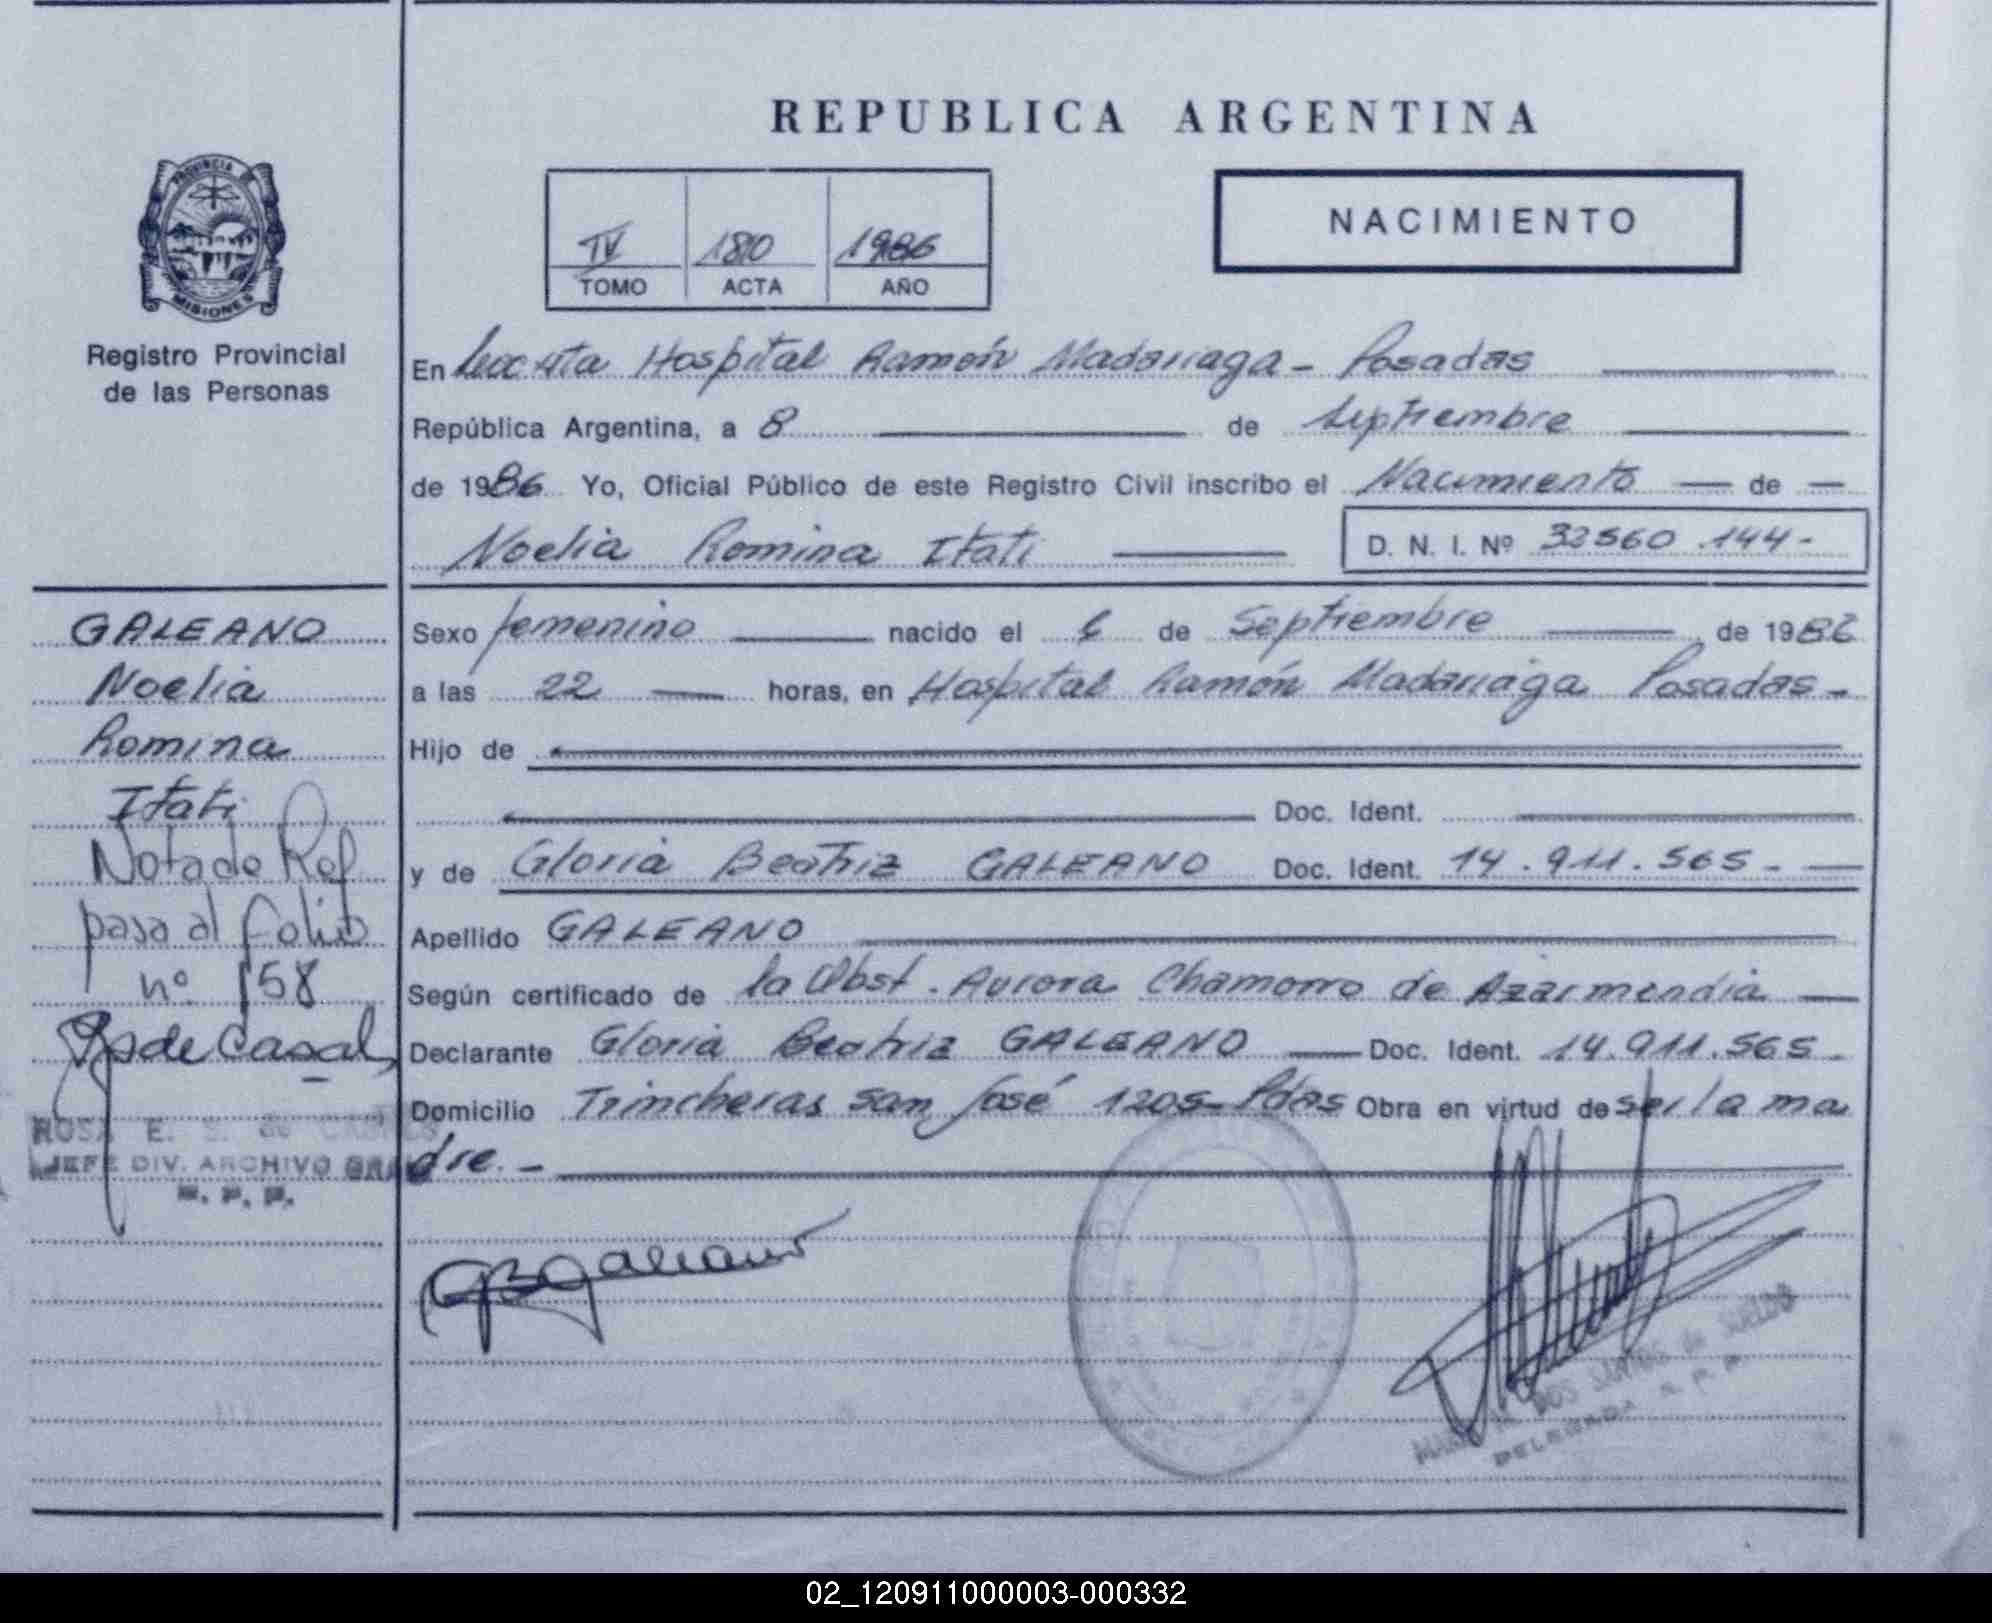 REPUBLICA ARGENTINA
PROVINCIA DE
MISIONES
Registro Provincial
de las Personas
IV 1810 1986
TOMO ACTA AÑO
NACIMIENTO
En Hospital Ramón Madariaga - Posadas
República Argentina, a 8 de Septiembre
de 1986 Yo, Oficial Público de este Registro Civil inscribo el Nacimiento de
Noelia Romina Itati
D. N. I. Nº 32560.144-
GALEANO
Noelia
Romina
Itati
Nota de Ref
pasa al folio
nº 158
JEFE DIV. ARCHIVO
Sexo femenino nacido el 6 de Septiembre de 1986
a las 22 horas, en Hospital Ramón Madariaga Posadas -
Hijo de
Doc. Ident.
y de Gloria Beatriz GALEANO Doc. Ident. 14.911.565-
Apellido GALEANO
Según certificado de la Obst. Aurora Chamorro de Azarmendia
Declarante Gloria Beatriz GALEANO Doc. Ident. 14.911.565-
Domicilio Trincheras San José 1205- Pdas Obra en virtud de ser la ma
dre.-
GBGaleano
DOS SANTOS de SUELDO
DELEGADA R. P. P.
02_120911000003-000332